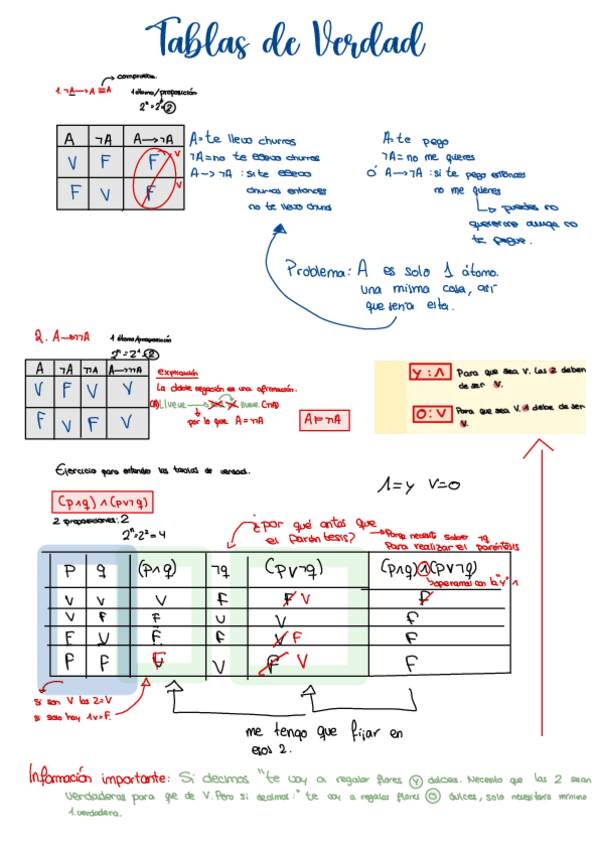 Tablas de Verdad
comprueba.
1. ¬A→A ≡A
1 átomo/proposición
2ⁿ=2¹=2
A ¬A A→¬A
V F F V
F V F V
A= te llevo churros
¬A= no te llevo churros
A→¬A : si te llevo
churros entonces
no te llevo churros
A= te pego
¬A= no me quieres
Ó A→¬A : si te pego entonces
no me quieres
puedes no
quererme aunque no
te pegue.
Problema: A es solo 1 átomo.
una misma cosa, así
que sería esta.
2. A→¬¬A
1 átomo/proposición
2ⁿ=2¹=2
A ¬A ¬¬A A→¬¬A
V F V V
F V F V
explicación
La doble negación es una afirmación.
(A) Llueve no no llueve (¬¬A)
por lo que A=¬¬A
A⊨¬¬A
Y : ∧ Para que sea V. las 2 deben
de ser V.
O : V Para que sea V. 1 debe de ser
V.
Ejercicio para entender las tablas de verdad.
∧=y V=o
(p∧q) ∧ (p∨¬q)
2 proposiciones: 2
2ⁿ=2²=4
¿por qué antes que
el paréntesis?
Porque necesito saber ¬q
para realizar el paréntesis
p q (p∧q) ¬q (p∨¬q) (p∧q)∧(p∨¬q)
operamos con la "y" ∧
V V V F F V F
V F F V V F
F V F F V F F
F F F V F V F
si son V las 2=V
si solo hay 1v=F.
me tengo que fijar en
esos 2.
Información importante: Si decimos "te voy a regalar flores y dulces. Necesito que las 2 sean
verdaderas para que de V. Pero si decimos: "te voy a regalar flores o dulces, solo necesitaría mínimo
1 verdadera.